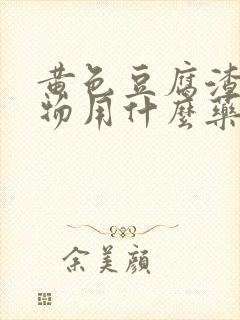 黄色豆腐渣
物用什麼藥
余美顔